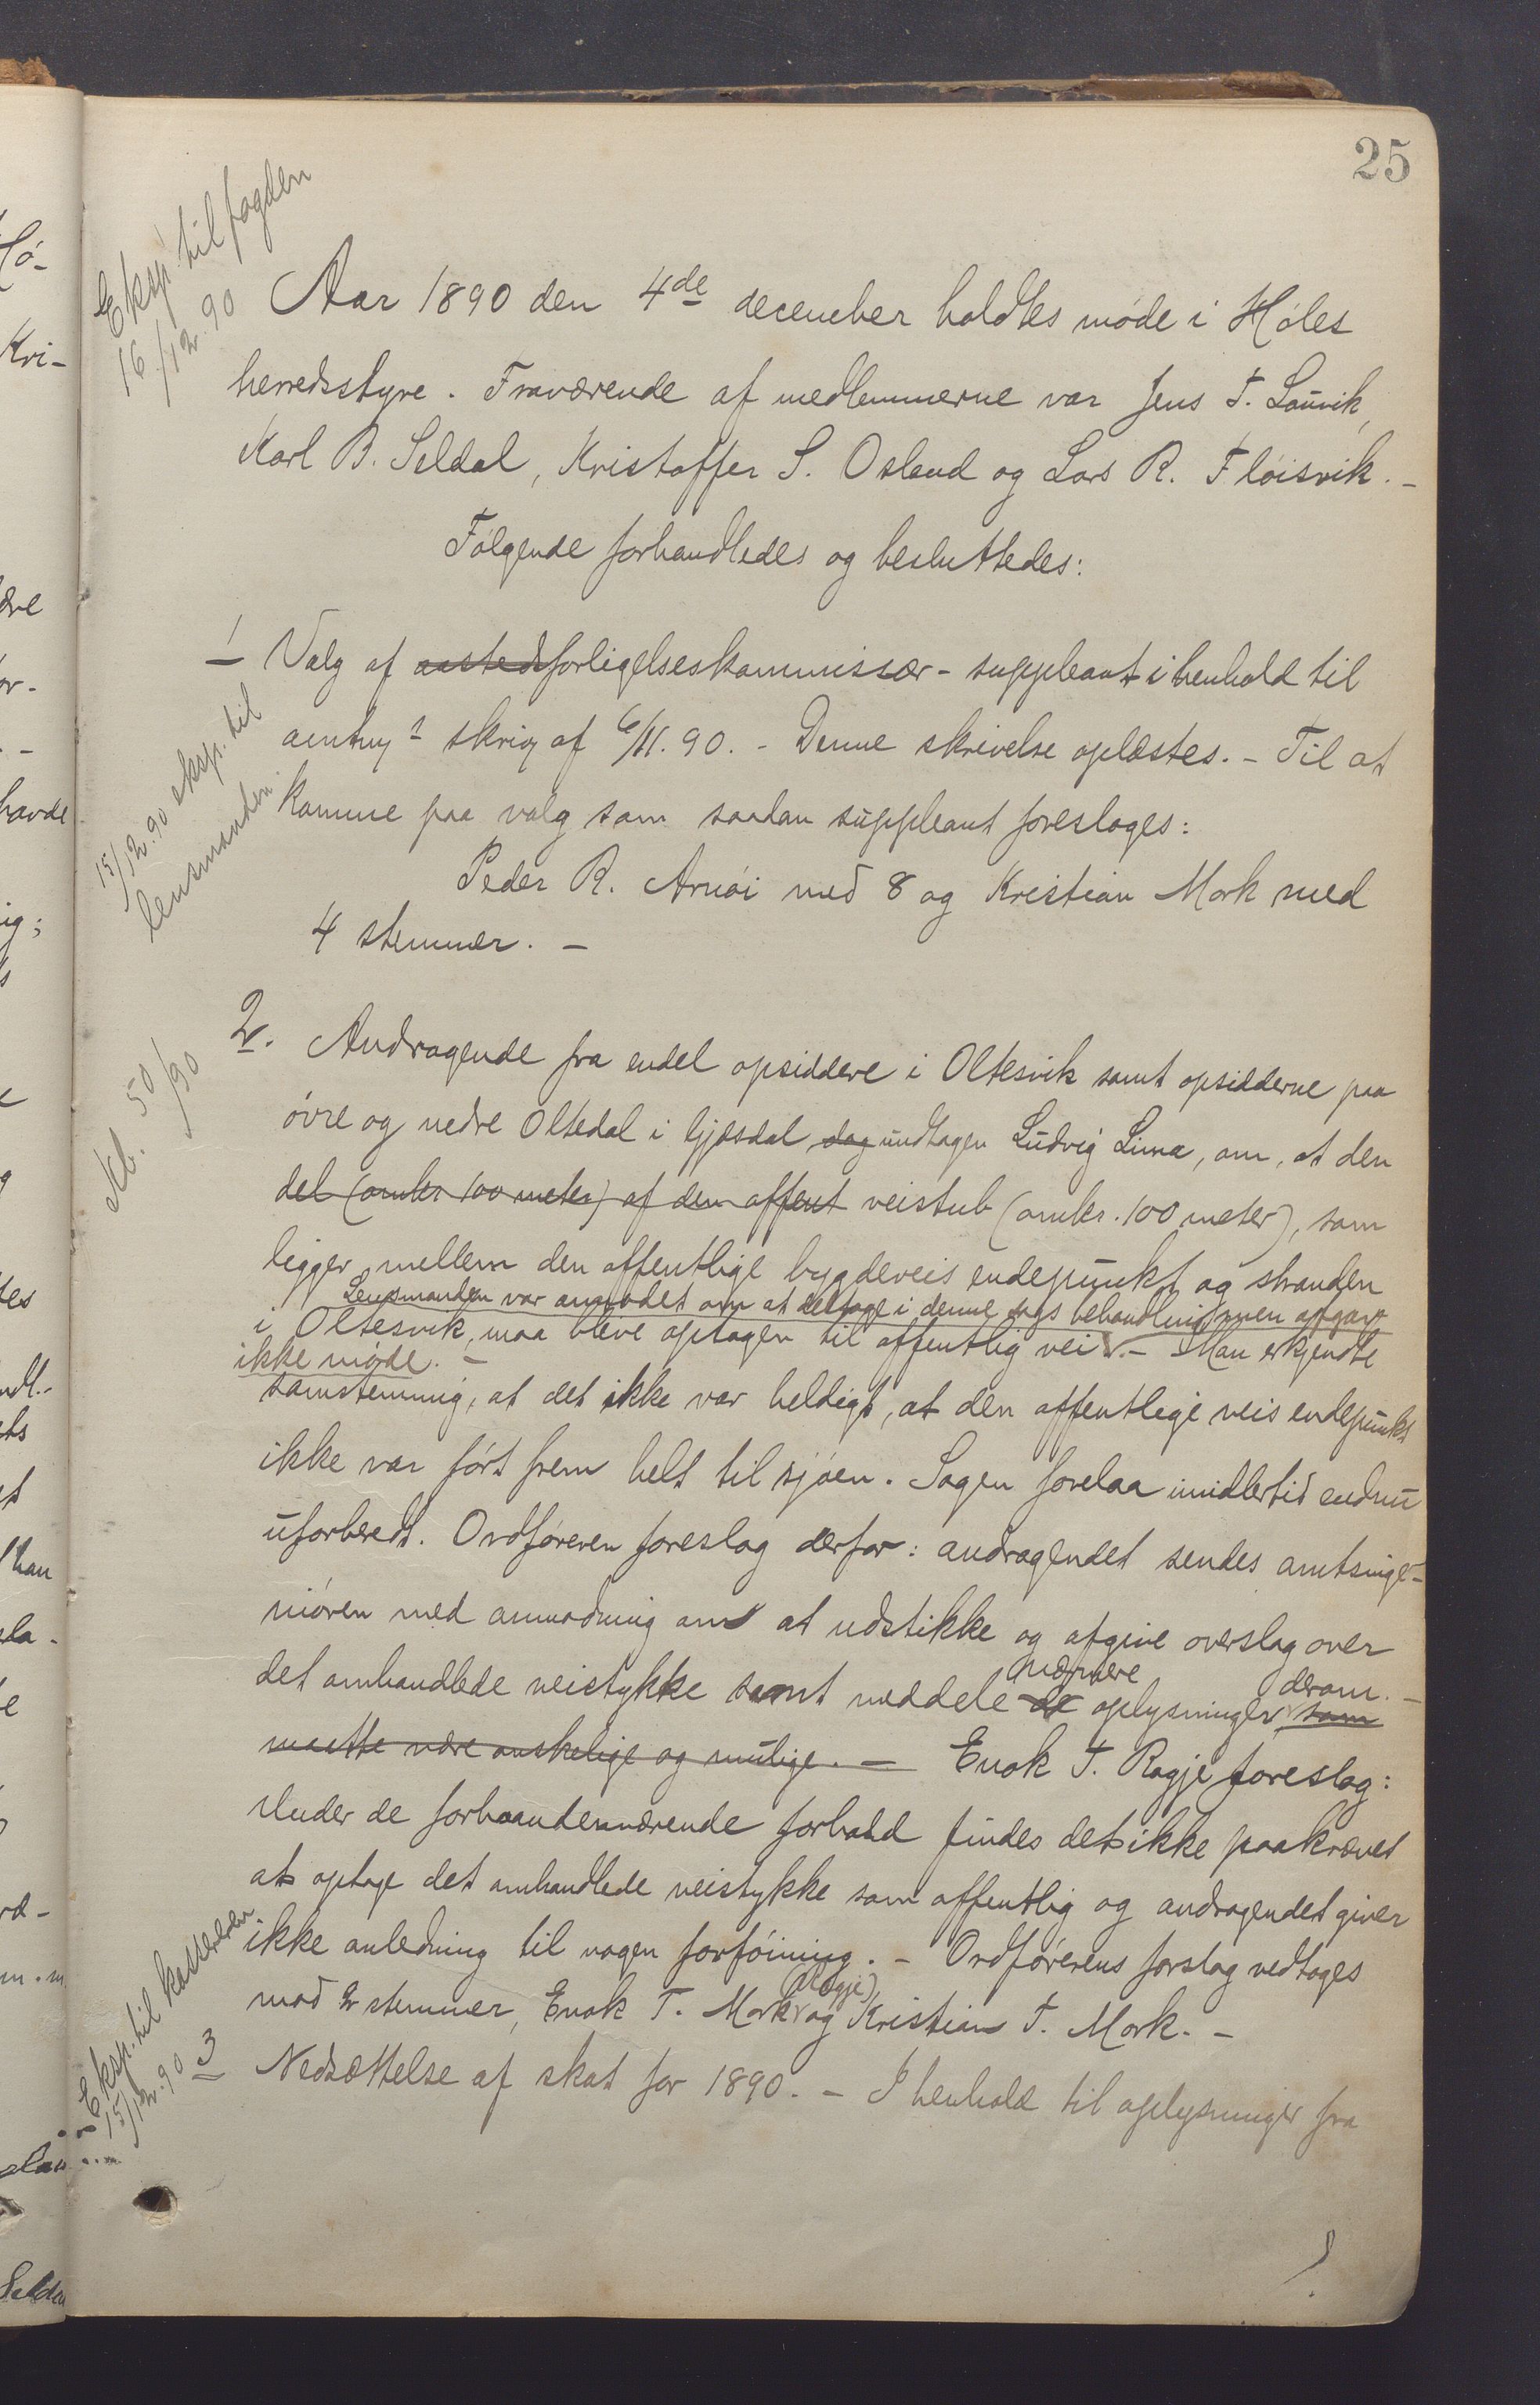 25
Eksp. til fogden
16/12. 90
Aar 1890 den 4de december holdtes møde i Høles
herredsstyre. Fraværende af medlemmerne var Jens T. Lauvik,
Karl B. Seldal, Kristoffer S. Osland og Lars R. Fløisvik. -
Følgende forhandledes og besluttedes:
1 Valg af aastedsforligelseskommissær - suppleant i henhold til
skriv af 6/11. 90. - Denne skrivelse oplæstes. - Til at
15/12. 90 eksp. til
lensmanden
komme paa valg som saadan suppleant foresloges:
Peder R. Arnøi med 8 og Kristian Mork med
4 stemmer. -
2. Andragende fra endel opsiddere i Oltesvik samt opsidderne paa
50/90
øvre og nedre Oltedal i Gjæsdal dog undtagen Ludvig Lima, om, at den
del (omkr 100 meter) af den offent veistub (omkr. 100 meter), som
ligger mellem den offentlige bygdeveis endepunkt og stranden
Lensmanden var anmodet om at deltage i denne sags behandling men afgav
i Oltesvik, maa blive optagen til offentlig vei. - Man erkjendte
ikke møde. -
samstemmig, at det ikke var heldigt, at den offentlige veis endepunkt
ikke var ført frem helt til sjøen. Sagen forelaa imidlertid endnu
uforberedt. Ordføreren foreslog derfor: andragendet sendes amtsinge-
niøren med anmodning om at udstikke og afgive overslag over
nærmere derom. -
det omhandlede veistykke samt meddele de oplysninger som
maatte være ønskelige og mulige. - Enok T. Ragje foreslog:
Under de forhaandenværende forhold findes det ikke paakrævet
at optage det omhandlede veistykke som offentlig og andragendet giver
ikke anledning til nogen forføining. - Ordførerens forslag vedtoges
(Ragje)
mod 2 stemmer, Enok T. Mork og Kristian T. Mork. -
Eksp. til kassereren
15/12. 90
3 Nedsættelse af skat for 1890. - I henhold til oplysninger fra